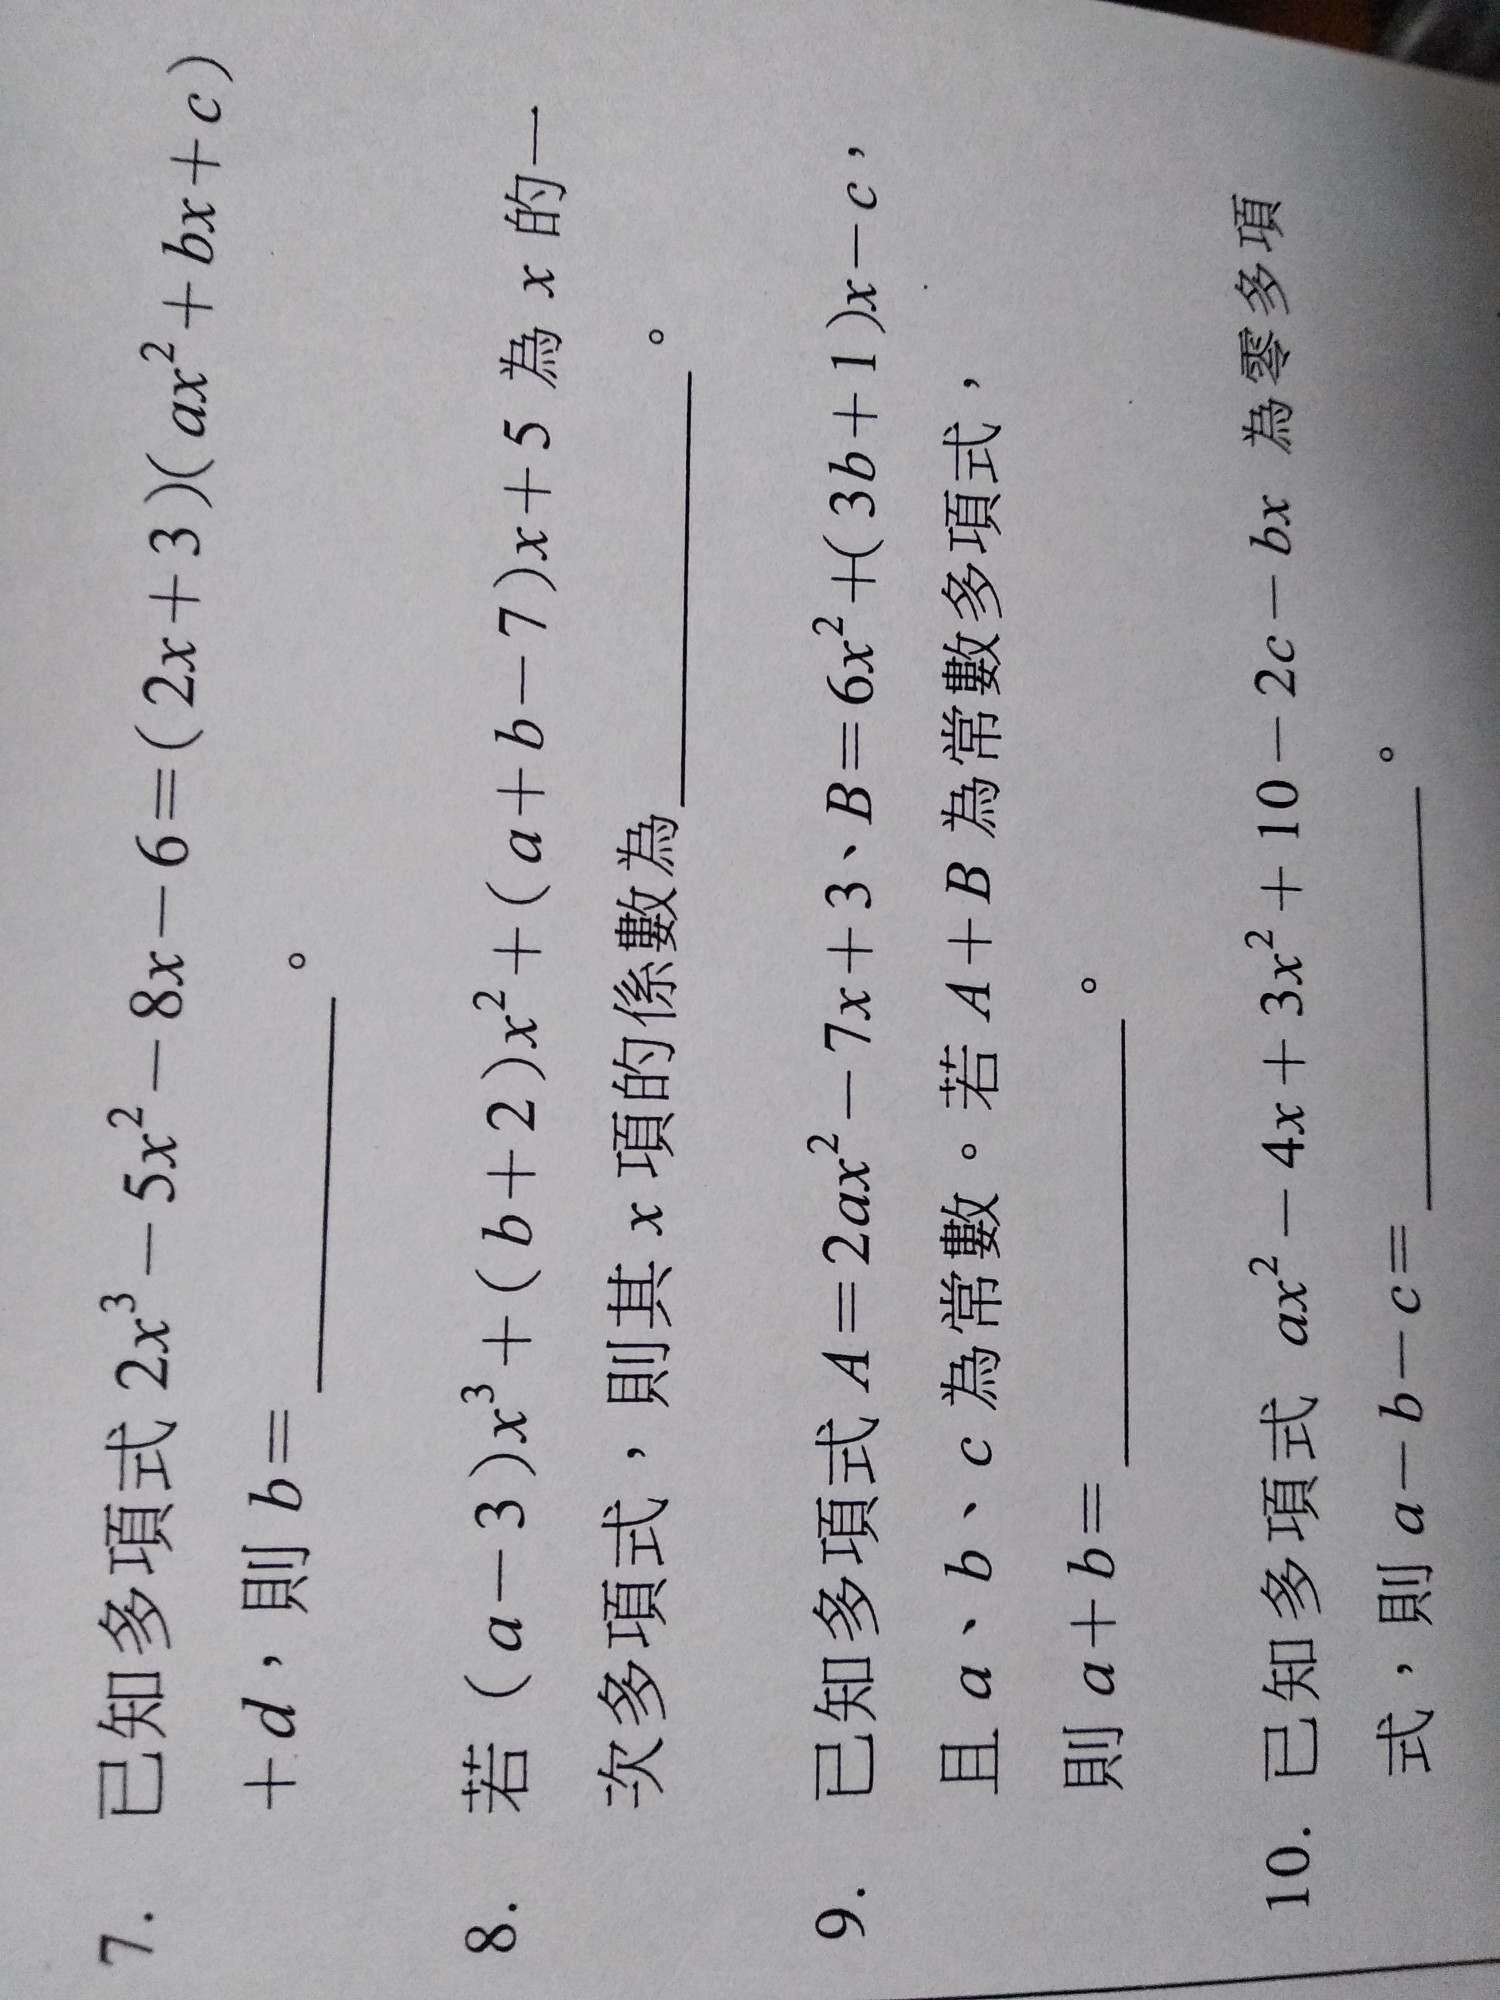 7. 已知多項式 2x³－5x²－8x－6=(2x+3)(ax²+bx+c)
+d，則 b=＿＿＿＿＿。
8. 若 (a－3)x³+(b+2)x²+(a+b－7)x+5 為 x 的一
次多項式，則其 x 項的係數為＿＿＿＿＿。
9. 已知多項式 A=2ax²－7x+3、B=6x²+(3b+1)x－c，
且 a、b、c 為常數。若 A+B 為常數多項式，
則 a+b=＿＿＿＿＿。
10. 已知多項式 ax²－4x+3x²+10－2c－bx 為零多項
式，則 a－b－c=＿＿＿＿＿。